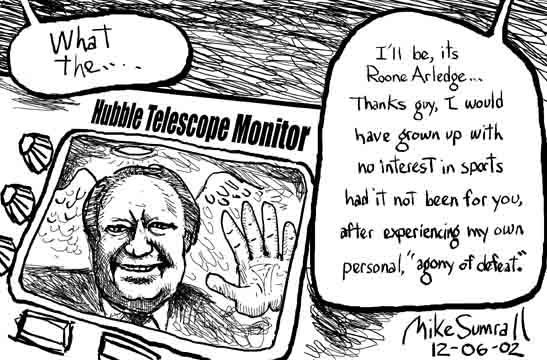 What
the.....
Hubble Telescope Monitor
I'll be, its
Roone Arledge...
Thanks guy, I would
have grown up with
no interest in sports
had it not been for you,
after experiencing my own
personal, "agony of defeat."
Mike Sumrall
12-06-02